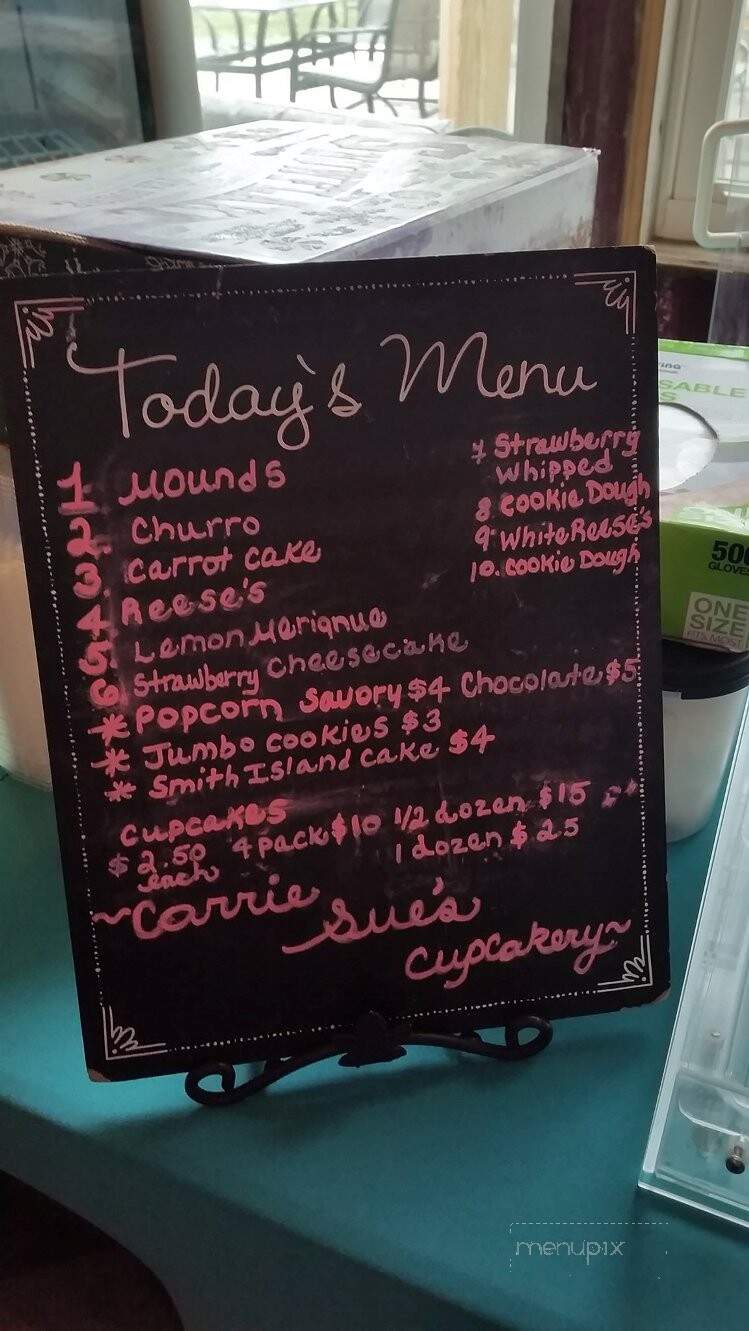 Today's Menu
1 Mounds
2. Churro
3. Carrot Cake
4 Reese's
5. Lemon Merignue
6 Strawberry Cheesecake
7 Strawberry
Whipped
8 Cookie Dough
9 White Reese's
10. Cookie Dough
* Popcorn Savory $4 Chocolate $5
* Jumbo cookies $3
* Smith Island cake $4
Cupcakes
$2.50 each 4 pack $10 1/2 dozen $15
1 dozen $25
~Carrie Sue's
Cupcakery~
SABLE
500
GLOVES
ONE
SIZE
FITS MOST
menupix